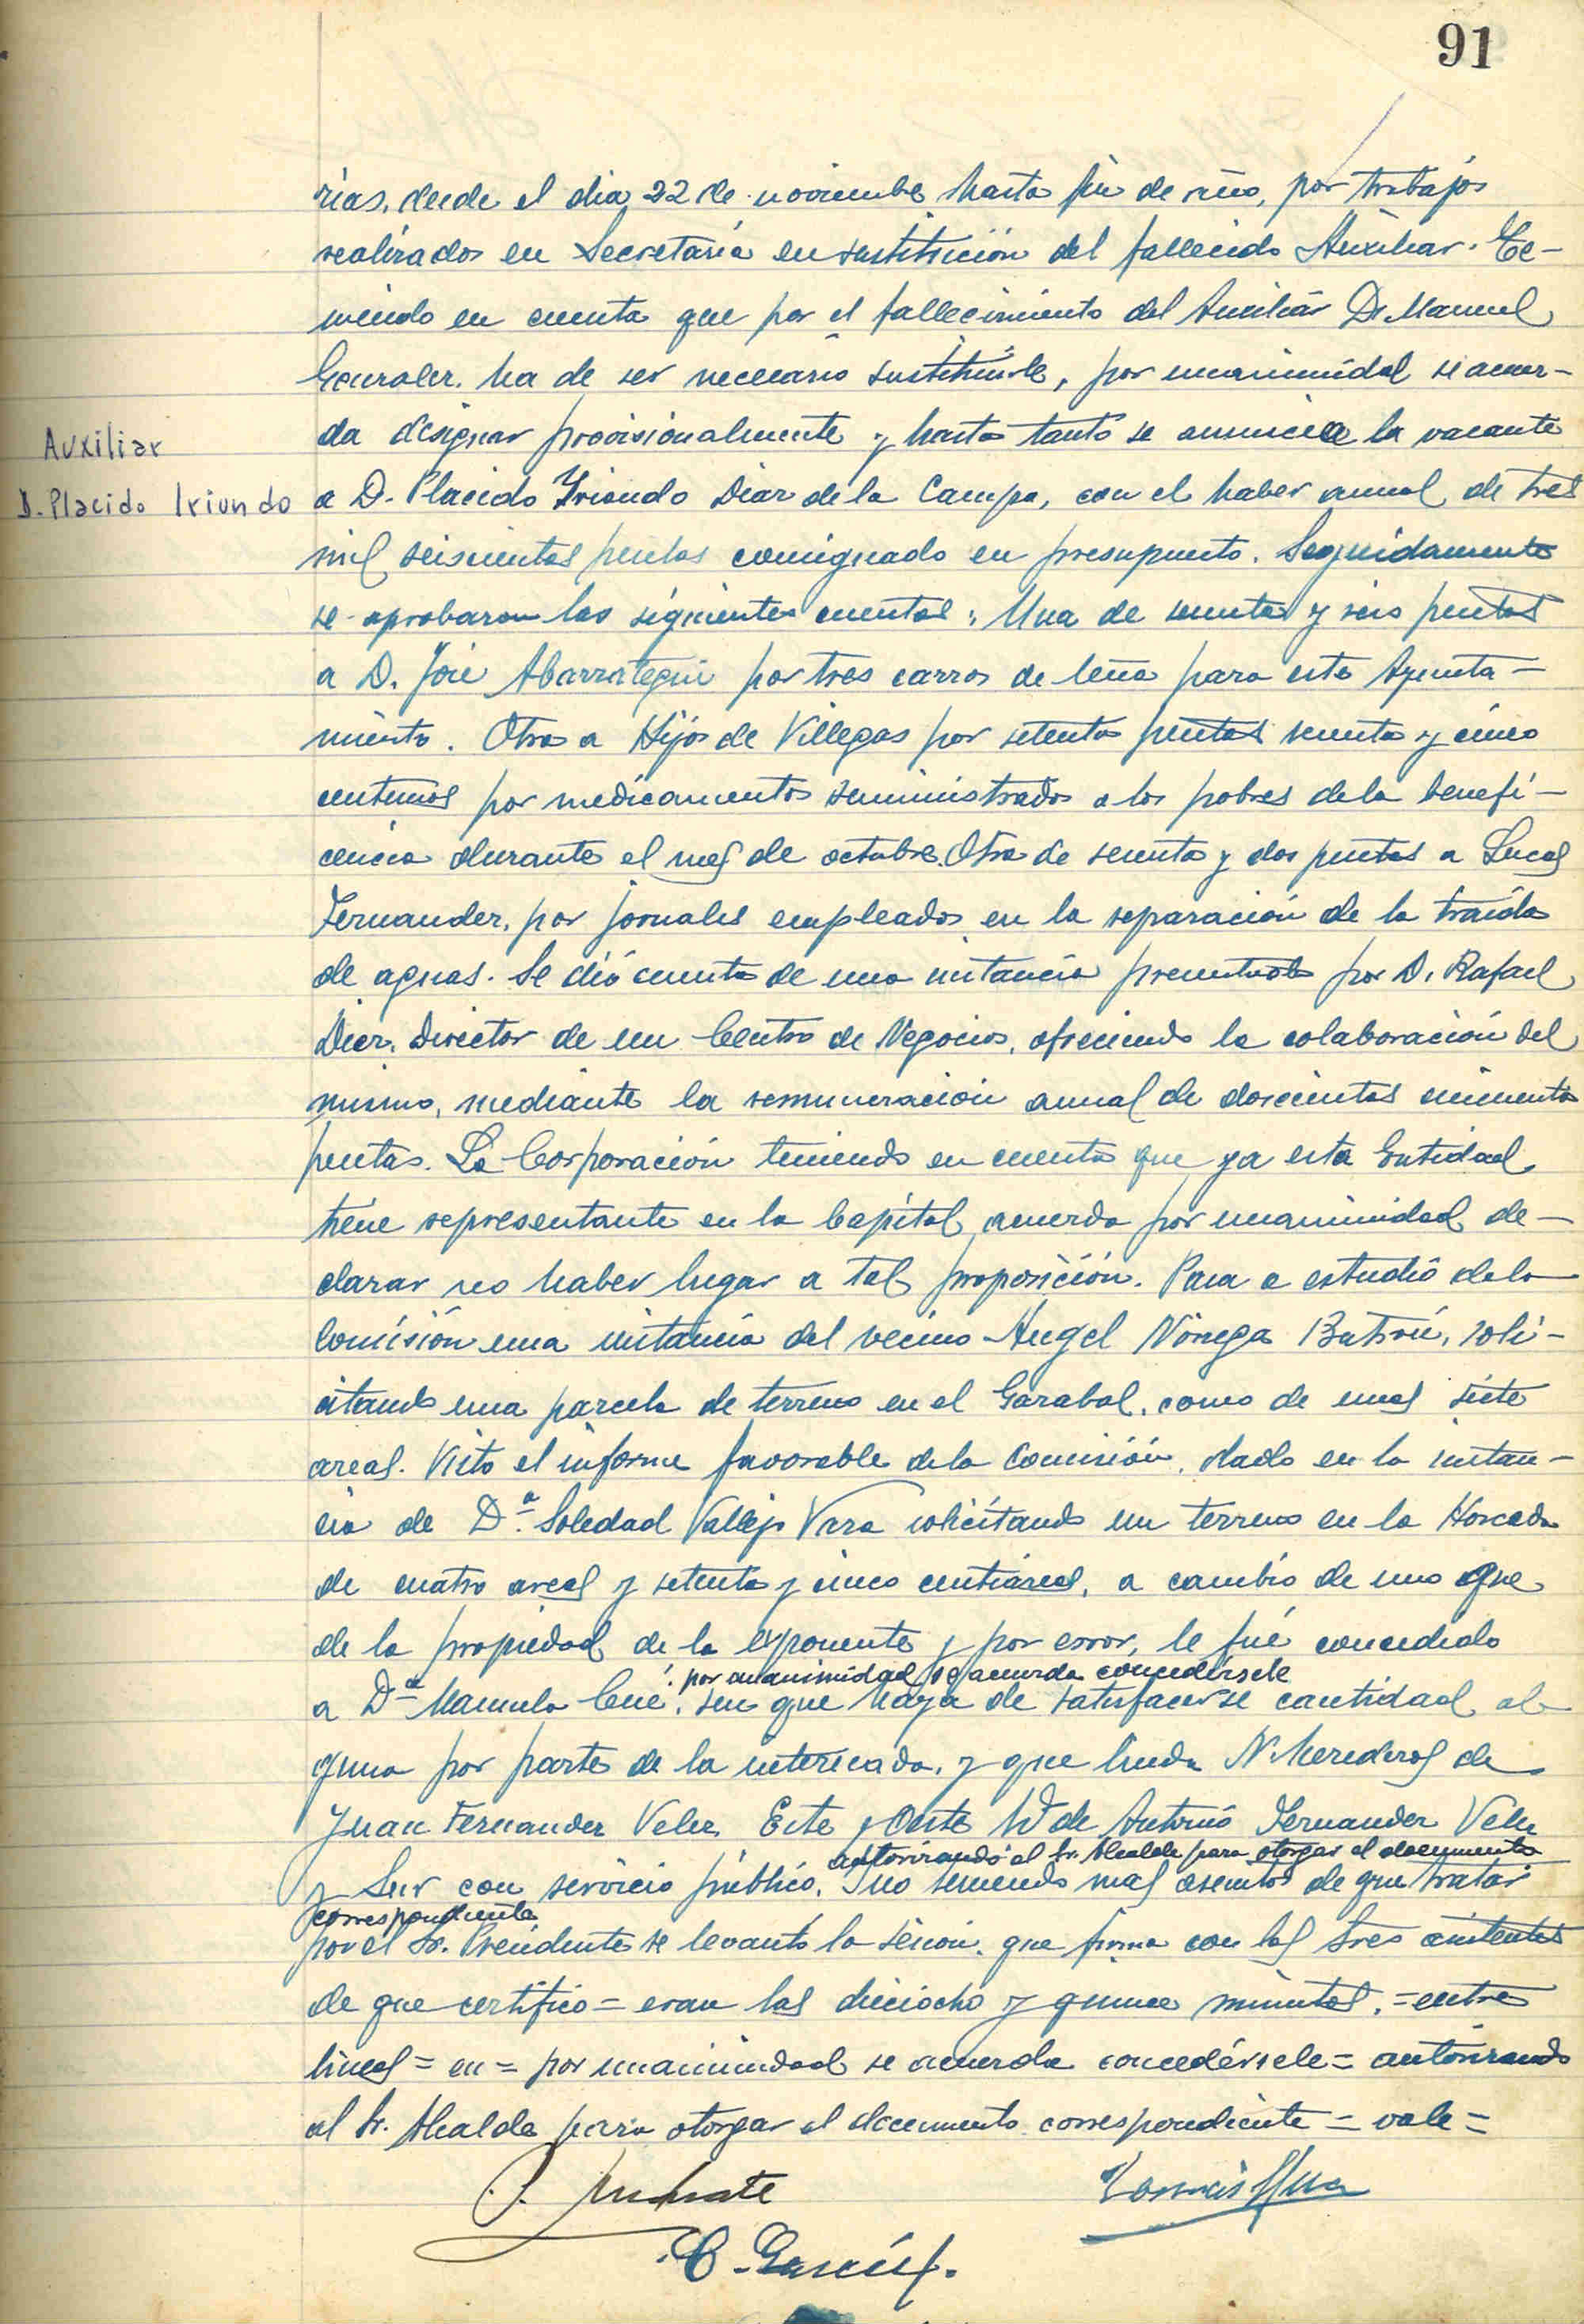 91
rias, desde el dia 22 de noviembre hasta fin de año, por trabajos
realizados en Secretaría en sustitución del fallecido Auxiliar. Te-
niendo en cuenta que por el fallecimiento del Auxiliar D. Manuel
Gonzalez. ha de ser necesario sustituirle, por unanimidad se acuer-
da designar provisionalmente y hasta tanto se anuncie la vacante
Auxiliar
D. Placido Iriondo
a D. Placido Yriondo Diaz de la Campa, con el haber anual de tres
mil seiscientas pesetas consignado en presupuesto. Seguidamente
se aprobaron las siguientes cuentas: Una de sesenta y seis pesetas
a D. José Abarrategui por tres carros de leña para este Ayunta-
miento. Otra a Hijos de Villegas por setenta pesetas sesenta y cinco
centimos por medicamentos suministrados a los pobres de la benefi-
cencia durante el mes de octubre. Otra de sesenta y dos pesetas a Lucas
Fernandez, por jornales empleados en la separación de la traida
de aguas. Se dió cuenta de una instancia presentada por D. Rafael
Diez. Director de un Centro de Negocios, ofreciendo la colaboración del
mismo, mediante la remuneracion anual de doscientas cincuenta
pesetas. La Corporación teniendo en cuenta que ya esta Entidad
tiene representante en la Capital, acuerda por unanimidad de-
clarar no haber lugar a tal proposición. Pasa a estudio de la
Comisión una instancia del vecino Angel Noriega Batrón, soli-
citando una parcela de terreno en el Garabal, como de unas siete
areas. Visto el informe favorable de la Comisión, dado en la instan-
cia de D.ª Soledad Vallejo Vara solicitando un terreno en la Horcada
de cuatro areas y setenta y cinco centiáreas, a cambio de uno que
de la propiedad de la exponente y por error, le fué concedido
por unanimidad se acuerda concedérsele
a Dª Manuela Cué, sin que haya de satisfacerse cantidad al-
guna por parte de la interesada, y que linda N. herederos de
Juan Fernandez Velez, Este y Oeste de Antonio Fernandez Velez
autorizando al Sr. Alcalde para otorgar el documento
y Sur con servicio público. Y no teniendo mas asuntos de que tratar
correspondiente
por el Sr. Presidente se levantó la sesion, que firma con los Sres asistentes
de que certifico = eran las dieciocho y quince minutos. = entre
lineas = en = por unanimidad se acuerda concedérsele = autorizando
al Sr. Alcalde para otorgar el documento correspondiente = vale =
C. García